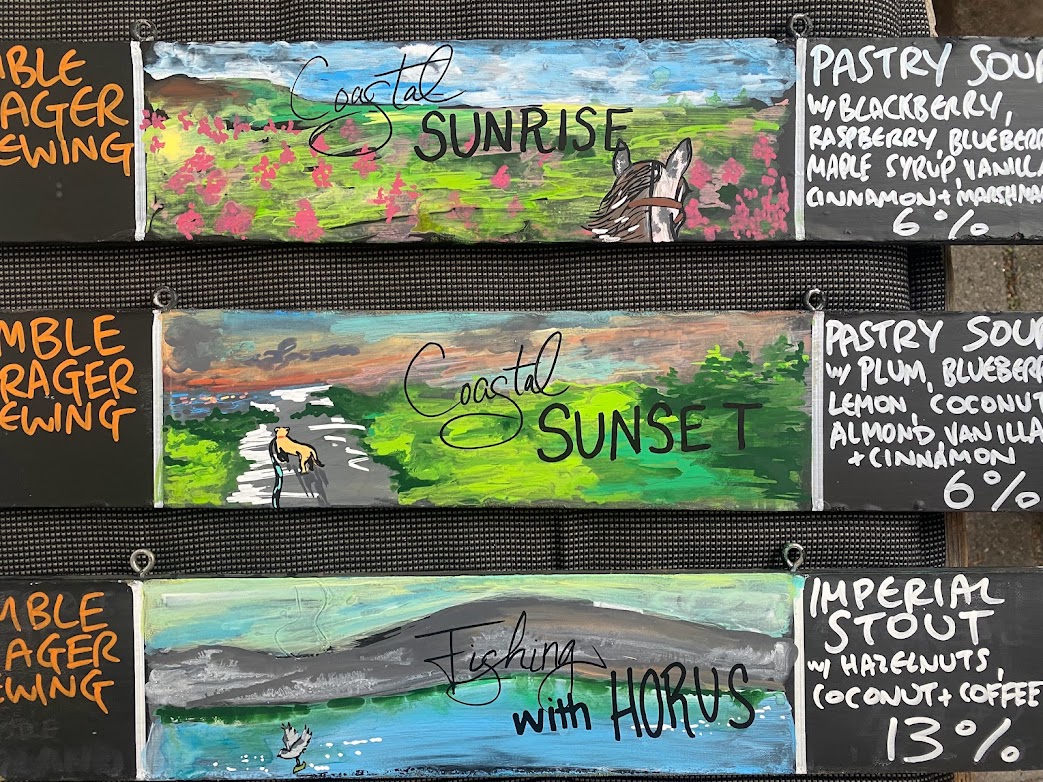 MBLE
RAGER
EWING
Coastal
SUNRISE
PASTRY SOUR
w/ BLACKBERRY,
RASPBERRY, BLUEBERR
MAPLE SYRUP, VANILLA
CINNAMON + MARSHMA
6%
MBLE
RAGER
EWING
Coastal
SUNSET
PASTRY SOUR
w/ PLUM, BLUEBERR
LEMON, COCONUT
ALMOND, VANILLA
+ CINNAMON
6%
MBLE
AGER
EWING
Fishing
with HORUS
IMPERIAL
STOUT
w/ HAZELNUTS,
COCONUT + COFFEE
13%